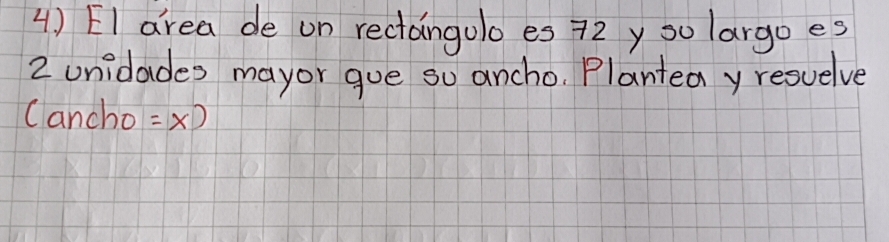 4.) El área de un rectángulo es 72 y su largo es
2 unidades mayor que su ancho. Plantea y resuelve
(ancho = x)